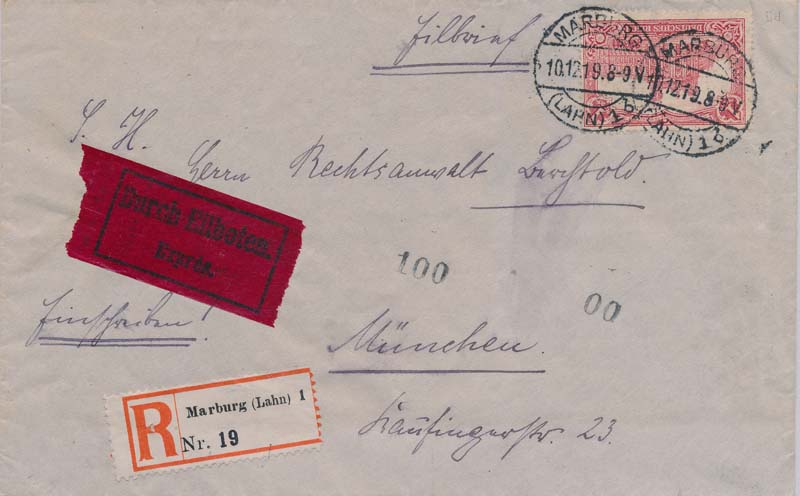 Eilbrief
DEUTSCHES REICH
MARBURG
10.12.19.8-9.V
(LAHN) 1 b.
MARBURG
12.19.8-9.V
(LAHN) 1 b.
S. H.
Herrn Rechtsanwalt Berchtold.
Durch Eilboten.
Exprès.
100
00
Einschreiben!
München.
Kaufingerstr. 23.
R
Marburg (Lahn) 1
Nr. 19